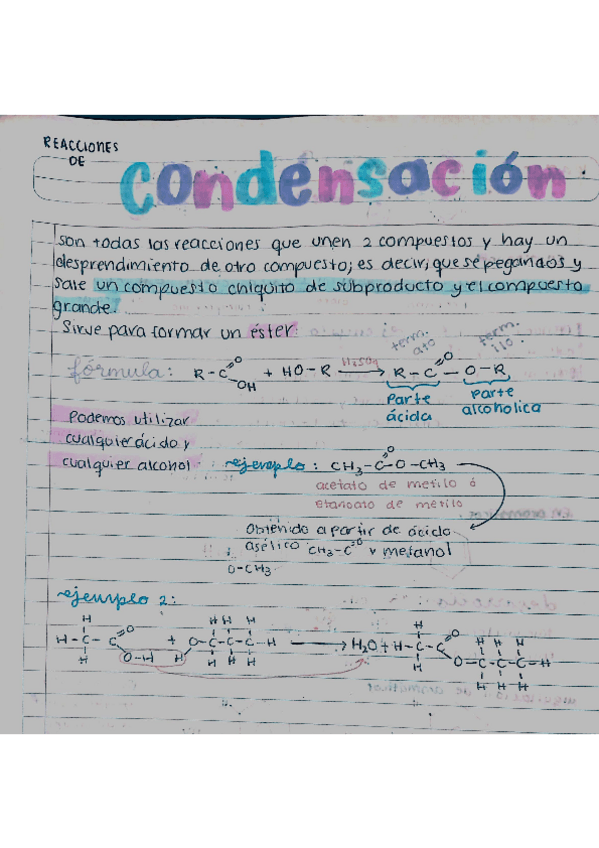 REACCIONES
DE
Condensación
son todas las reacciones que unen 2 compuestos y hay un
desprendimiento de otro compuesto; es decir, que se pegan dos y
sale un compuesto chiquito de subproducto y el compuesto
grande.
Sirve para formar un éster
term. ato
term. ilo
fórmula: R-C=O OH + HO-R H₂SO₄ → R-C=O-O-R
parte ácida
parte alcoholica
Podemos utilizar
cualquier ácido y
cualquier alcohol
ejemplo: CH₃-C=O-O-CH₃
acetato de metilo ó
etanoato de metilo
Obtenido a partir de ácido
CH₃-C=O y metanol
O-CH₃
ejemplo 2:
H H H H H H H H
H-C-C=O + O-C-C-C-H → H₂O + H-C-C=O
H O-H H H H H H O-C-C-C-H
H H H